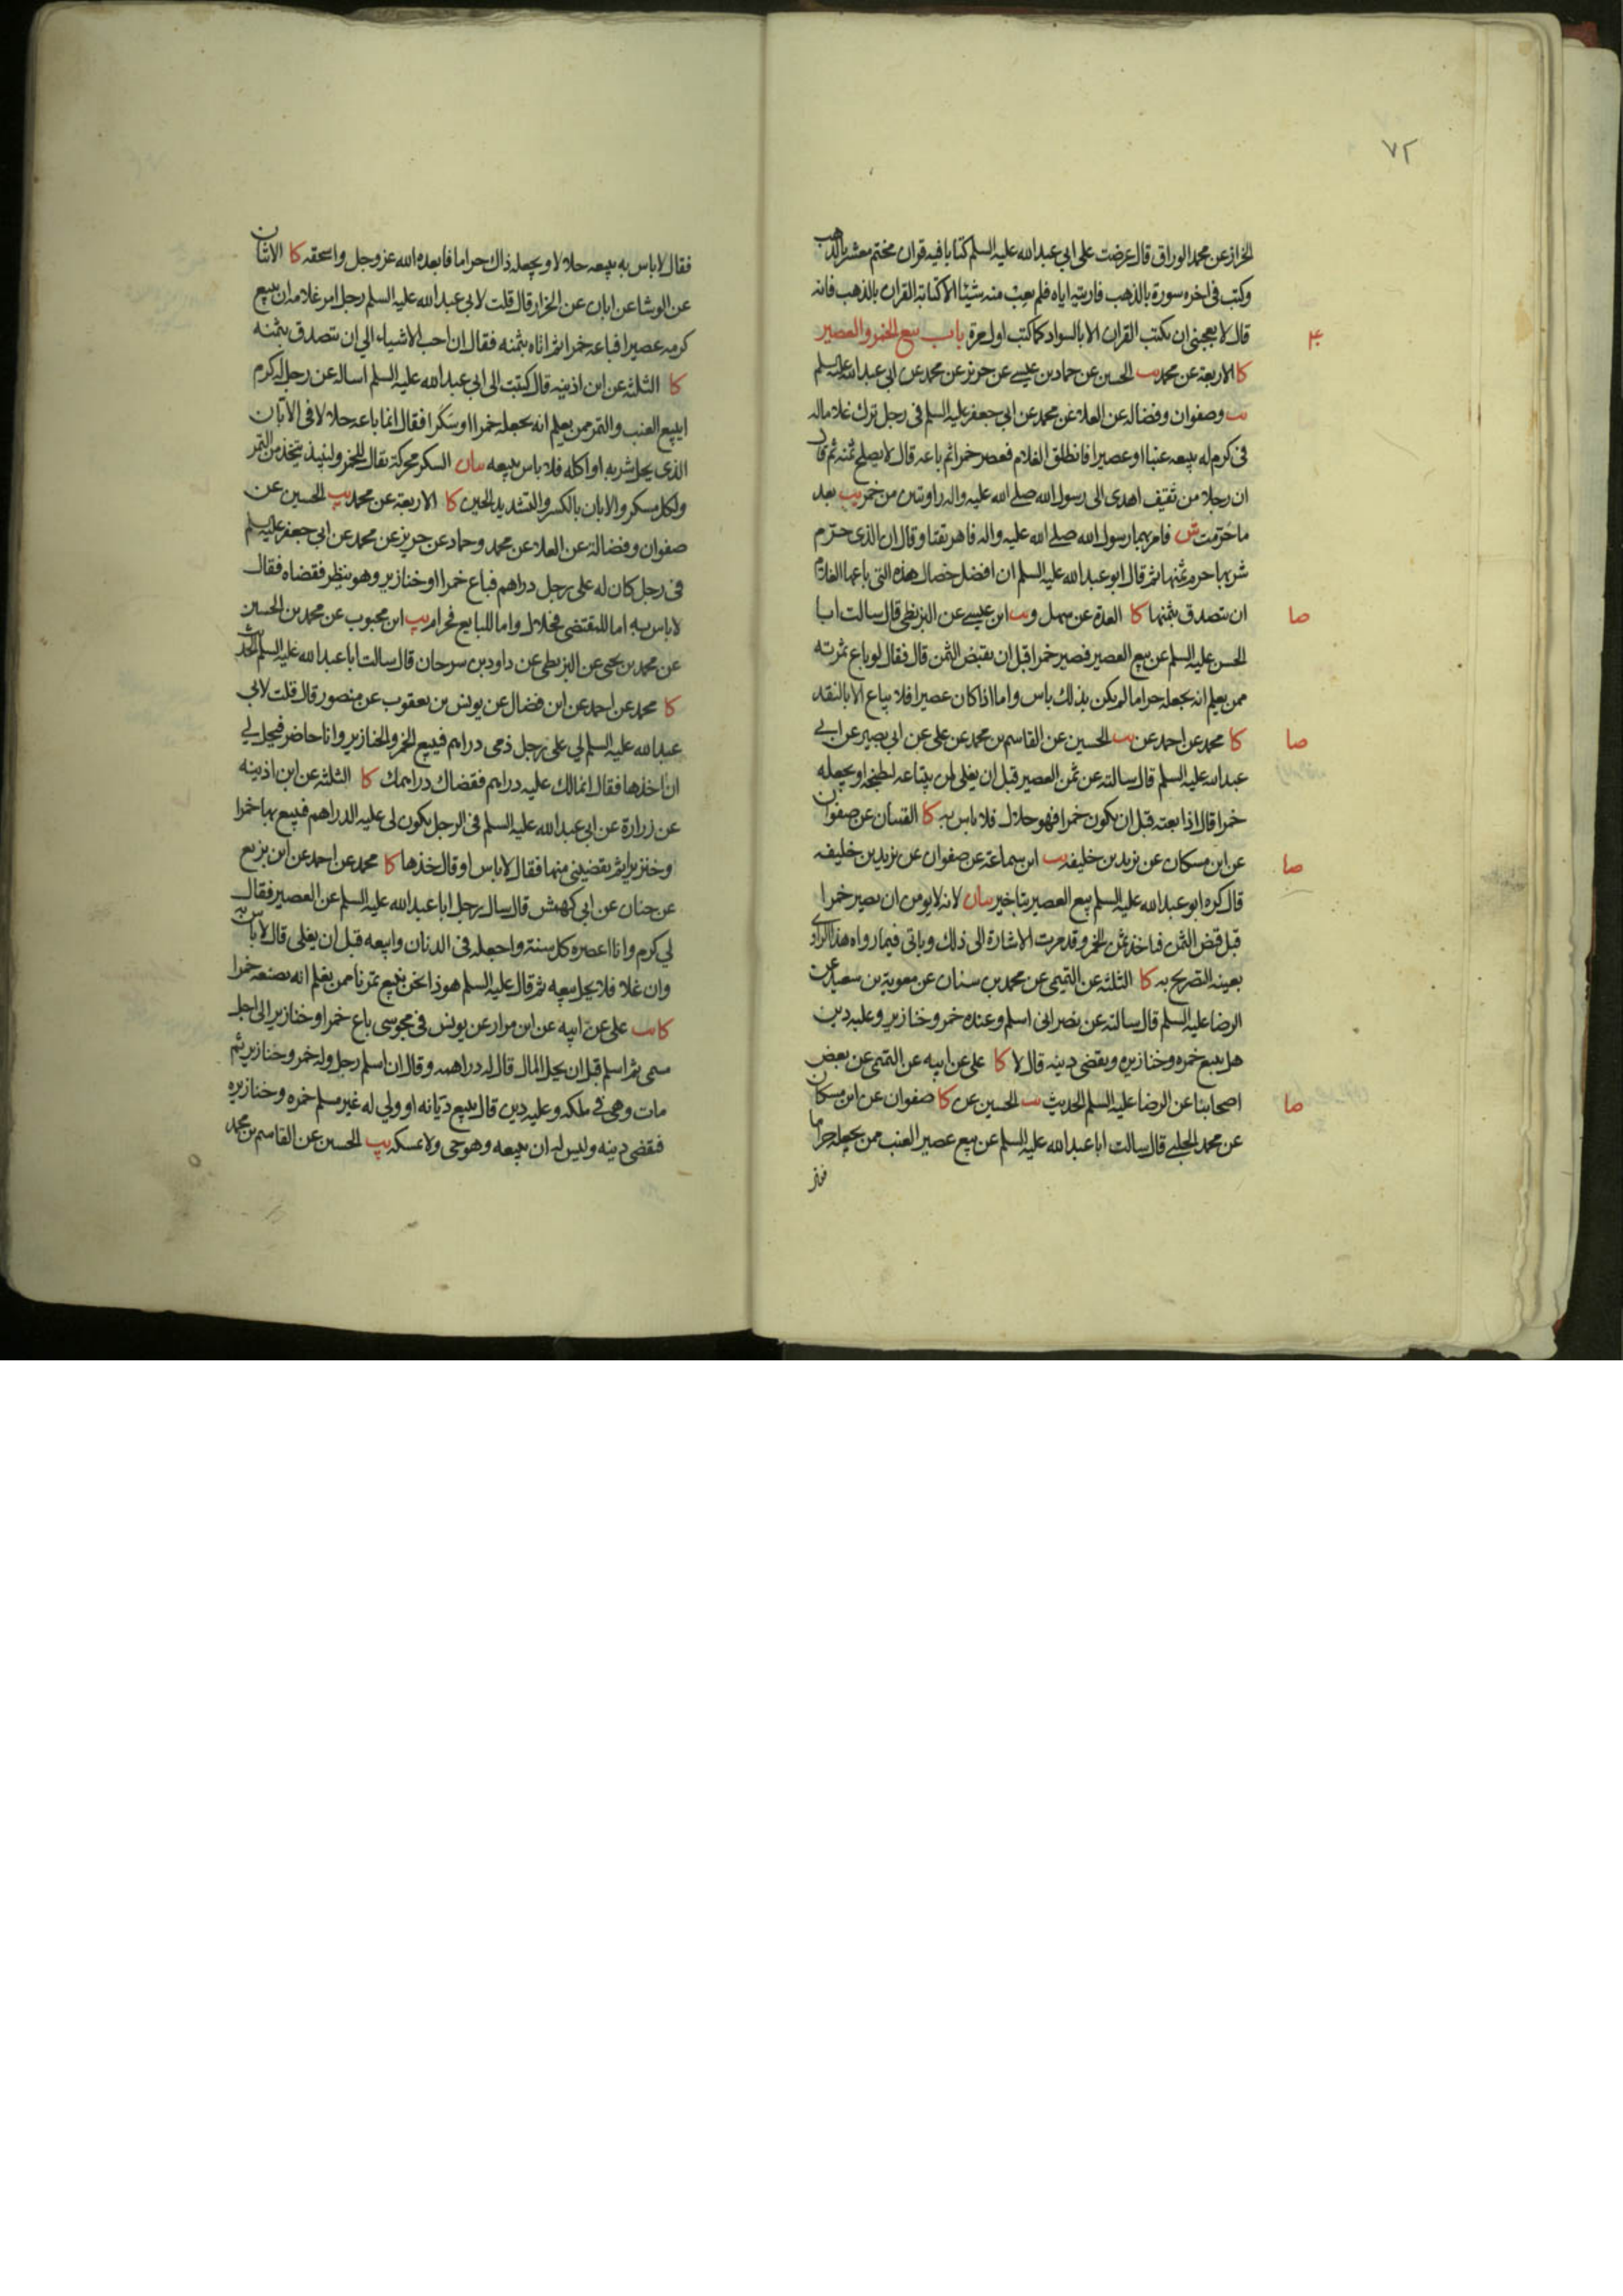 ٧٢
الخراز عن محمد الوراق قال عرضت على ابي عبدالله عليه السلم كتابا فيه قران مختم معشر بالذهب
وكتب في اخره سورة بالذهب فاريته اياه فلم يعب منه شيئا الا كتابة القران بالذهب فانه
قال لا يعجبني ان يكتب القران الا بالسواد كما كتب اول مرة باب بيع الخمر والعصير
كا الاربعة عن محمد يب الحسين عن حماد بن عيسى عن حريز عن محمد عن ابي عبدالله عليه السلم
يب وصفوان وفضاله عن العلا عن محمد عن ابي جعفر عليه السلم في رجل ترك غلاما له
في كرم له يبيعه عنبا او عصيرا فانطلق الغلام فعصر خمرا ثم باعه قال لا يصلح ثمنه ثم قال
ان رجلا من ثقيف اهدى الى رسول الله صلى الله عليه واله راويتين من خمر يب بعد
ما حرمت ش فامر بهما رسول الله صلى الله عليه واله فاهريقتا وقال ان الذى حرم
شربها حرم ثمنها ثم قال ابو عبدالله عليه السلم ان افضل خصال هذه التي باعها الغلام
صا
ان يتصدق بثمنها كا العدة عن سهل و يب ابن عيسى عن البزنطي قال سالت ابا
الحسن عليه السلم عن بيع العصير فصير خمرا قبل ان يقبض الثمن قال فقال لو باع ثمرته
ممن يعلم انه يجعله حراما لم يكن بذلك باس واما اذا كان عصيرا فلا يباع الا بالنقد
صا
كا محمد عن احمد عن يب الحسين عن القاسم بن محمد عن على عن ابي بصير عن ابي
عبدالله عليه السلم قال سالته عن ثمن العصير قبل ان يغلى لمن يبتاعه ليطبخه او يجعله
خمرا قال اذا بعته قبل ان يكون خمرا فهو حلال فلا باس به كا القميان عن صفوان
صا
عن ابن مسكان عن يزيد بن خليفه يب ابن سماعة عن صفوان عن يزيد بن خليفه
قال كره ابو عبدالله عليه السلم بيع العصير بتاخير بيان لانه لا يومن ان يصير خمرا
قبل قبض الثمن فياخذ ثمن الخمر وقد مرت الاشارة الى ذلك وياتي فيما رواه هذا الراوي
بعينه التصريح به كا الثلثه عن التميمى عن محمد بن سنان عن معوية بن سعيد عن
الرضا عليه السلم قال سالته عن نصراني اسلم وعنده خمر وخنازير وعليه دين
هل يبيع خمره وخنازيره ويقضى دينه قال لا كا على عن ابيه عن التميمى عن بعض
صا
اصحابنا عن الرضا عليه السلم الحديث يب الحسين عن كا صفوان عن ابن مسكان
عن محمد الحلبي قال سالت ابا عبدالله عليه السلم عن بيع عصير العنب ممن يجعله حراما
فقال لا باس به يبيعه حلالا ويجعله ذاك حراما فابعده الله عز وجل واسحقه كا الاثنان
عن الوشا عن ابان عن الخزاز قال قلت لابي عبدالله عليه السلم رجل امر غلامه ان يبيع
كرمه عصيرا فباعه خمرا ثم اتاه بثمنه فقال ان احب الاشياء الي ان يتصدق بثمنه
كا الثلثه عن ابن اذينه قال كتبت الى ابي عبدالله عليه السلم اساله عن رجل له كرم
ايبيع العنب والتمر ممن يعلم انه يجعله خمرا او سكرا فقال انما باعه حلالا في الابان
الذى يحل شربه او اكله فلا باس ببيعه بيان السكر محركة يقال للخمر ولنبيذ يتخذ من التمر
ولكل مسكر والابان بالكسر والتشديد الحين كا الاربعة عن محمد يب الحسين عن
صفوان وفضالة عن العلا عن محمد وحماد عن حريز عن محمد عن ابي جعفر عليه السلم
في رجل كان له على رجل دراهم فباع خمرا او خنازير وهو ينظر فقضاه فقال
لا باس به اما للمقتضى فحلال واما للبايع فحرام يب ابن محبوب عن محمد بن الحسين
عن محمد بن يحيى عن البزنطي عن داود بن سرحان قال سالت ابا عبدالله عليه السلم الحديث
كا محمد عن احمد عن ابن فضال عن يونس بن يعقوب عن منصور قال قلت لابي
عبدالله عليه السلم لي على رجل ذمى دراهم فيبيع الخمر والخنازير وانا حاضر فيحل لي
ان اخذها فقال انما لك عليه دراهم فقضاك دراهمك كا الثلثه عن ابن اذينه
عن زرارة عن ابي عبدالله عليه السلم في الرجل يكون لي عليه الدراهم فيبيع بها خمرا
وخنزيرا ثم يقضيني منها فقال لا باس او قال خذها كا محمد عن احمد عن ابن بزيع
عن حنان عن ابي كهمش قال سال رجل ابا عبدالله عليه السلم عن العصير فقال
لي كرم وانا اعصره كل سنة واجعله في الدنان وابيعه قبل ان يغلى قال لا باس به
وان غلا فلا يحل بيعه ثم قال عليه السلم هو ذا نحن نبيع تمرنا ممن يعلم انه يصنعه خمرا
كا يب على عن ابيه عن ابن مرار عن يونس في مجوسى باع خمرا او خنازير الى اجل
مسمى ثم اسلم قبل ان يحل المال قال له دراهمه وقال ان اسلم رجل وله خمر وخنازير ثم
مات وهي في ملكه وعليه دين قال يبيع ديانه او ولي له غير مسلم خمره وخنازيره
فيقضى دينه وليس له ان يبيعه وهو حى ولا يمسكه يب الحسين عن القاسم بن محمد